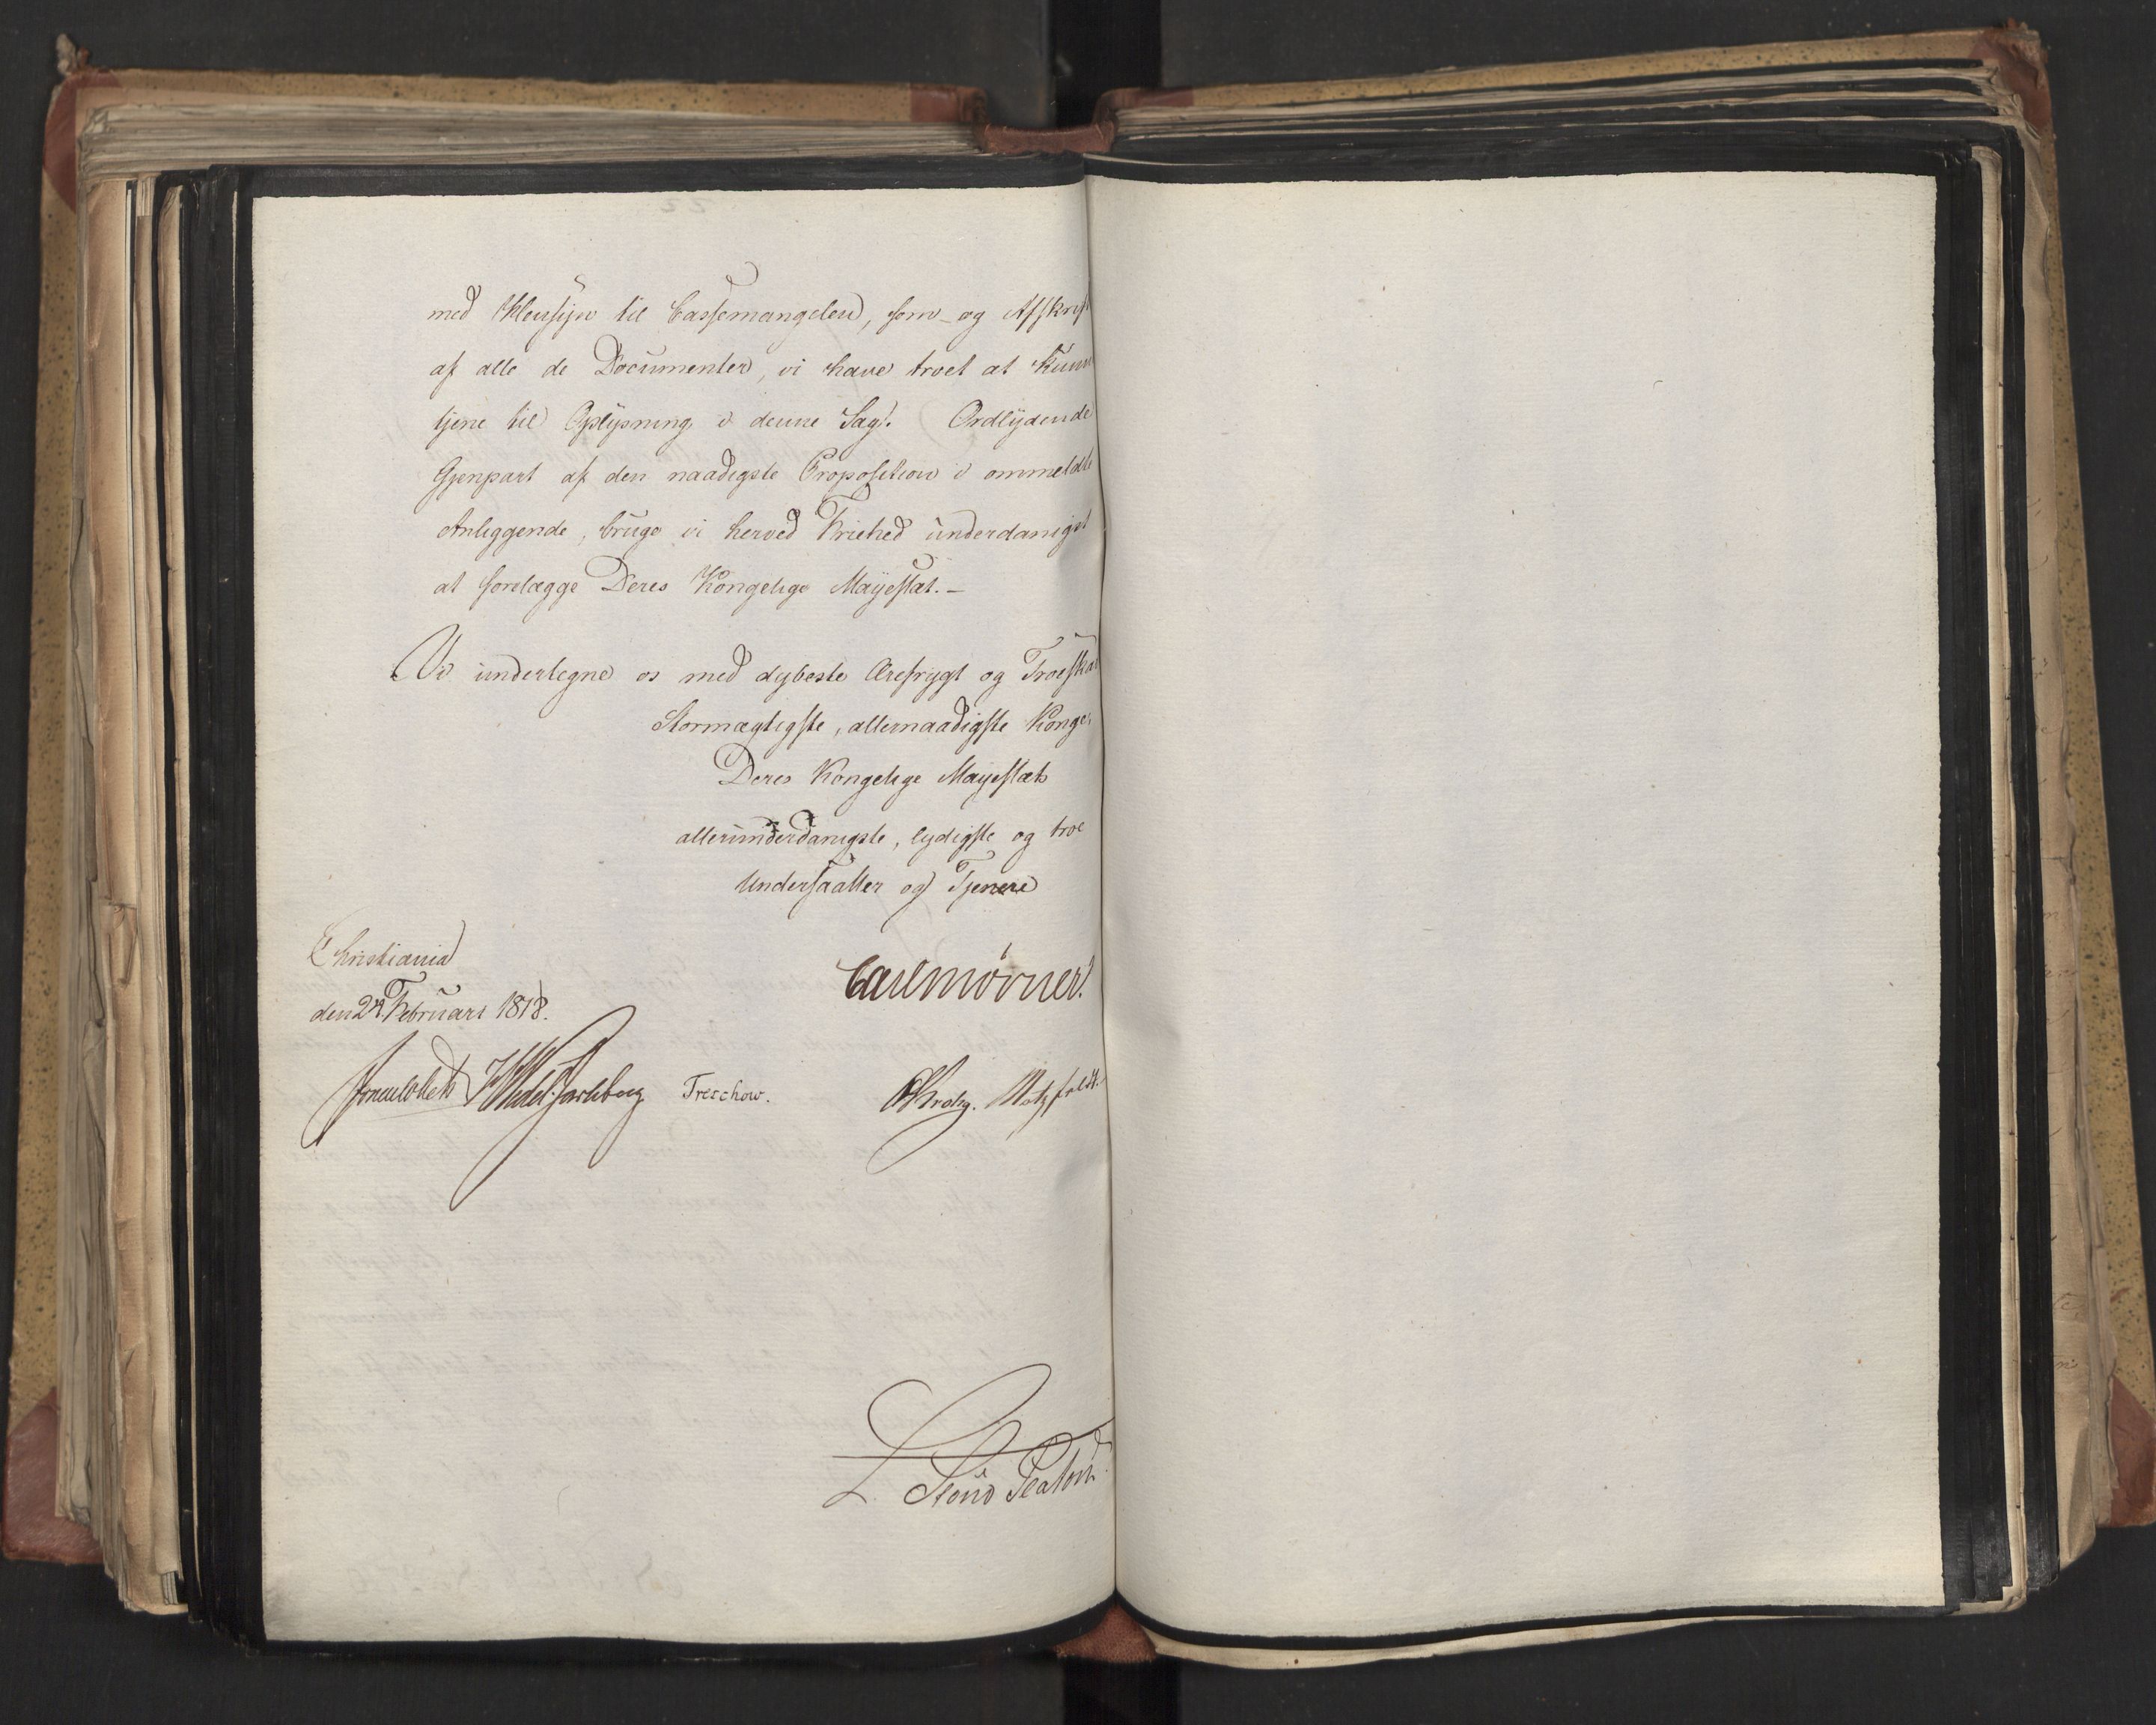 med Hensyn til Cassemangelen, som og Afskrift
af alle de Documenter, vi have troet at kunne
tjene til Oplysning i denne Sag. Ordlydende
Gjenpart af den naadigste Proposition i ommeldte
Anliggende, bruge vi herved Friehed underdanigst
at forelægge Deres Kongelige Mayestæt. –
Vi undertegne os med dybeste Ærefrygt og Troeskab
Stormægtigste, allernaadigste Konge
Deres Kongelige Mayestæts
allerunderdanigste, lydigste og troe
Undersaatter og Tjenere
Christiania
den 24. Februari 1818.
Carl Mörner.
Jonas Collett HWedel Jarlsberg Treschow. CKrohg. Motzfeldt.
L. Stoud Platou